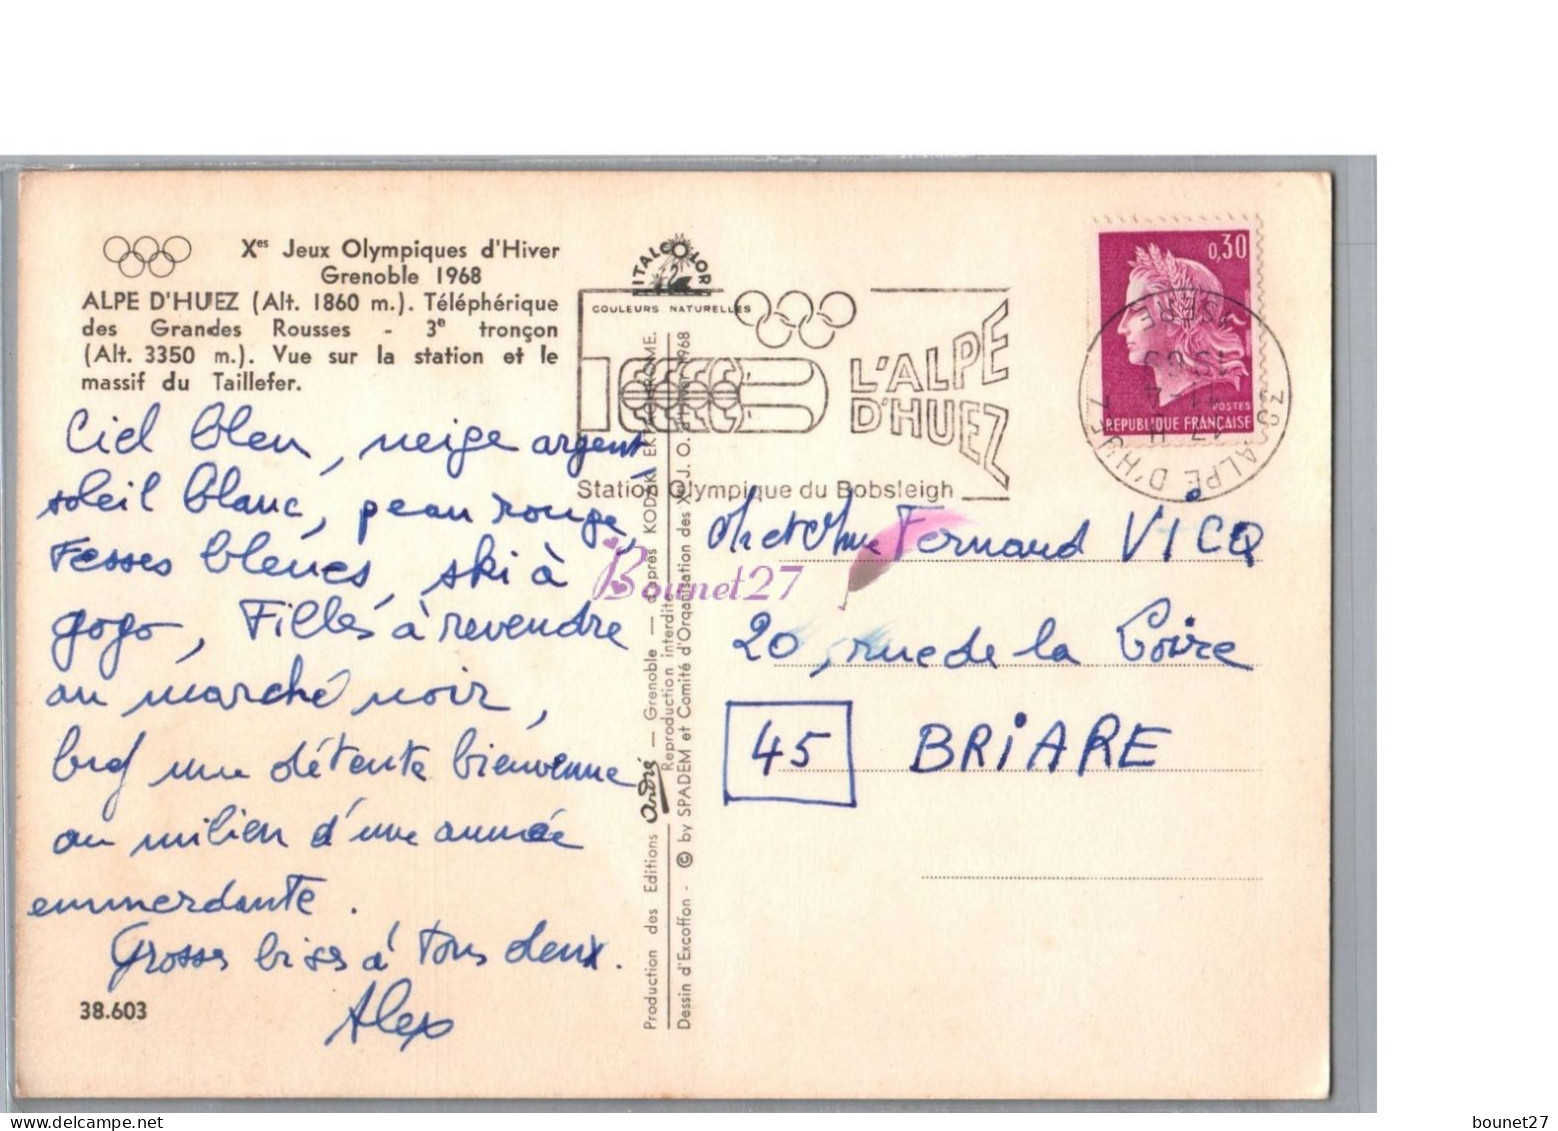 Xes Jeux Olympiques d'Hiver
Grenoble 1968
ALPE D'HUEZ (Alt. 1860 m.). Téléphérique
des Grandes Rousses - 3e tronçon
(Alt. 3350 m.). Vue sur la station et le
massif du Taillefer.
Ciel bleu, neige argent,
soleil blanc, peau rouge,
Fesses bleues, ski à
gogo, Filles à revendre
au marché noir,
bref une détente bienvenue
au milieu d'une année
emmerdante.
Grosses bises à tous deux.
Alex
38.603
ITALCOLOR
COULEURS NATURELLES
L'ALPE
D'HUEZ
Station Olympique du Bobsleigh
Production des Editions andré — Grenoble — d'après KODAK EKTACHROME.
Reproduction interdite
Dessin d'Excoffon - © by SPADEM et Comité d'Organisation des Xes J. O. d'Hiver 1968
0,30
POSTES
REPUBLIQUE FRANÇAISE
38 ALPE D'HUEZ
ISERE
Mr et Mme Fernand VICQ
20, rue de la Loire
45 BRIARE
Bounet27
bounet27